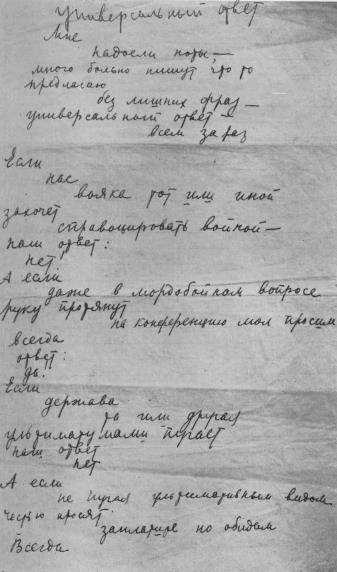 универсальный ответ
Мне
надоели ноты —
много больно пишут что то
предлагаю
без лишних фраз —
универсальный ответ —
всем зараз
Если
нас
вояка тот или иной
захочет
спровоцировать войной —
наш ответ:
нет!
А если
даже в мордобойном вопросе
руку протянут
на конференцию мол просим
всегда
ответ:
да.
Если
держава
та или другая
ультиматумами пугает
наш ответ
нет
А если
не пугая ультимативным видом
просят
заплатите по обидам
Всегда